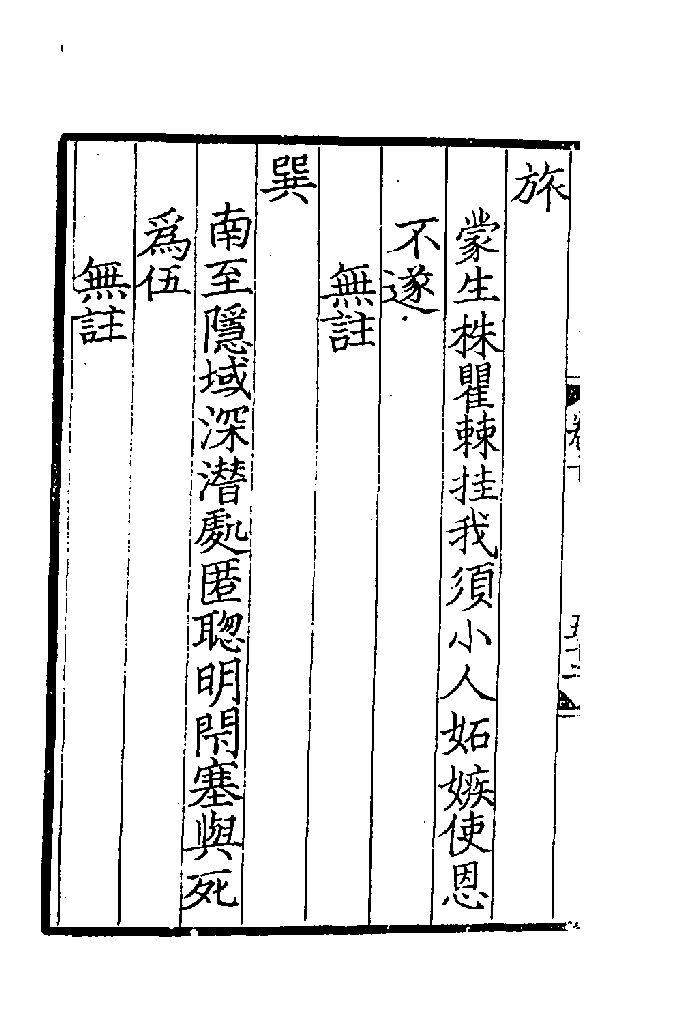 旅
蒙生株瞿棘挂我須小人妬嫉使恩
不遂
無註
巽
南至隱域深潛處匿聰明閇塞與死
爲伍
無註